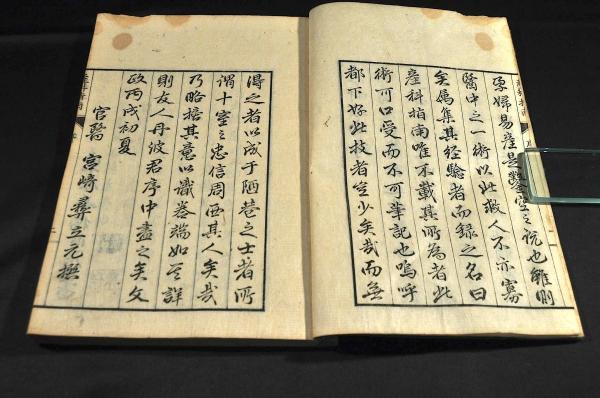 婦易産是鑿空之說也雖則
醫中之一術以此救人不亦寡
矣屬集其經驗者而錄之名曰
産科指南唯不載其所為者此
術可口受而不可筆記也嗚呼
都下好此技者豈少矣哉而無
得之者以成于陋巷之士者所
謂十室之忠信周西其人矣哉
乃略其意以識卷端如其詳
則友人丹波君序中盡之矣文
政丙戌初夏
官醫 宮崎彝立元撰